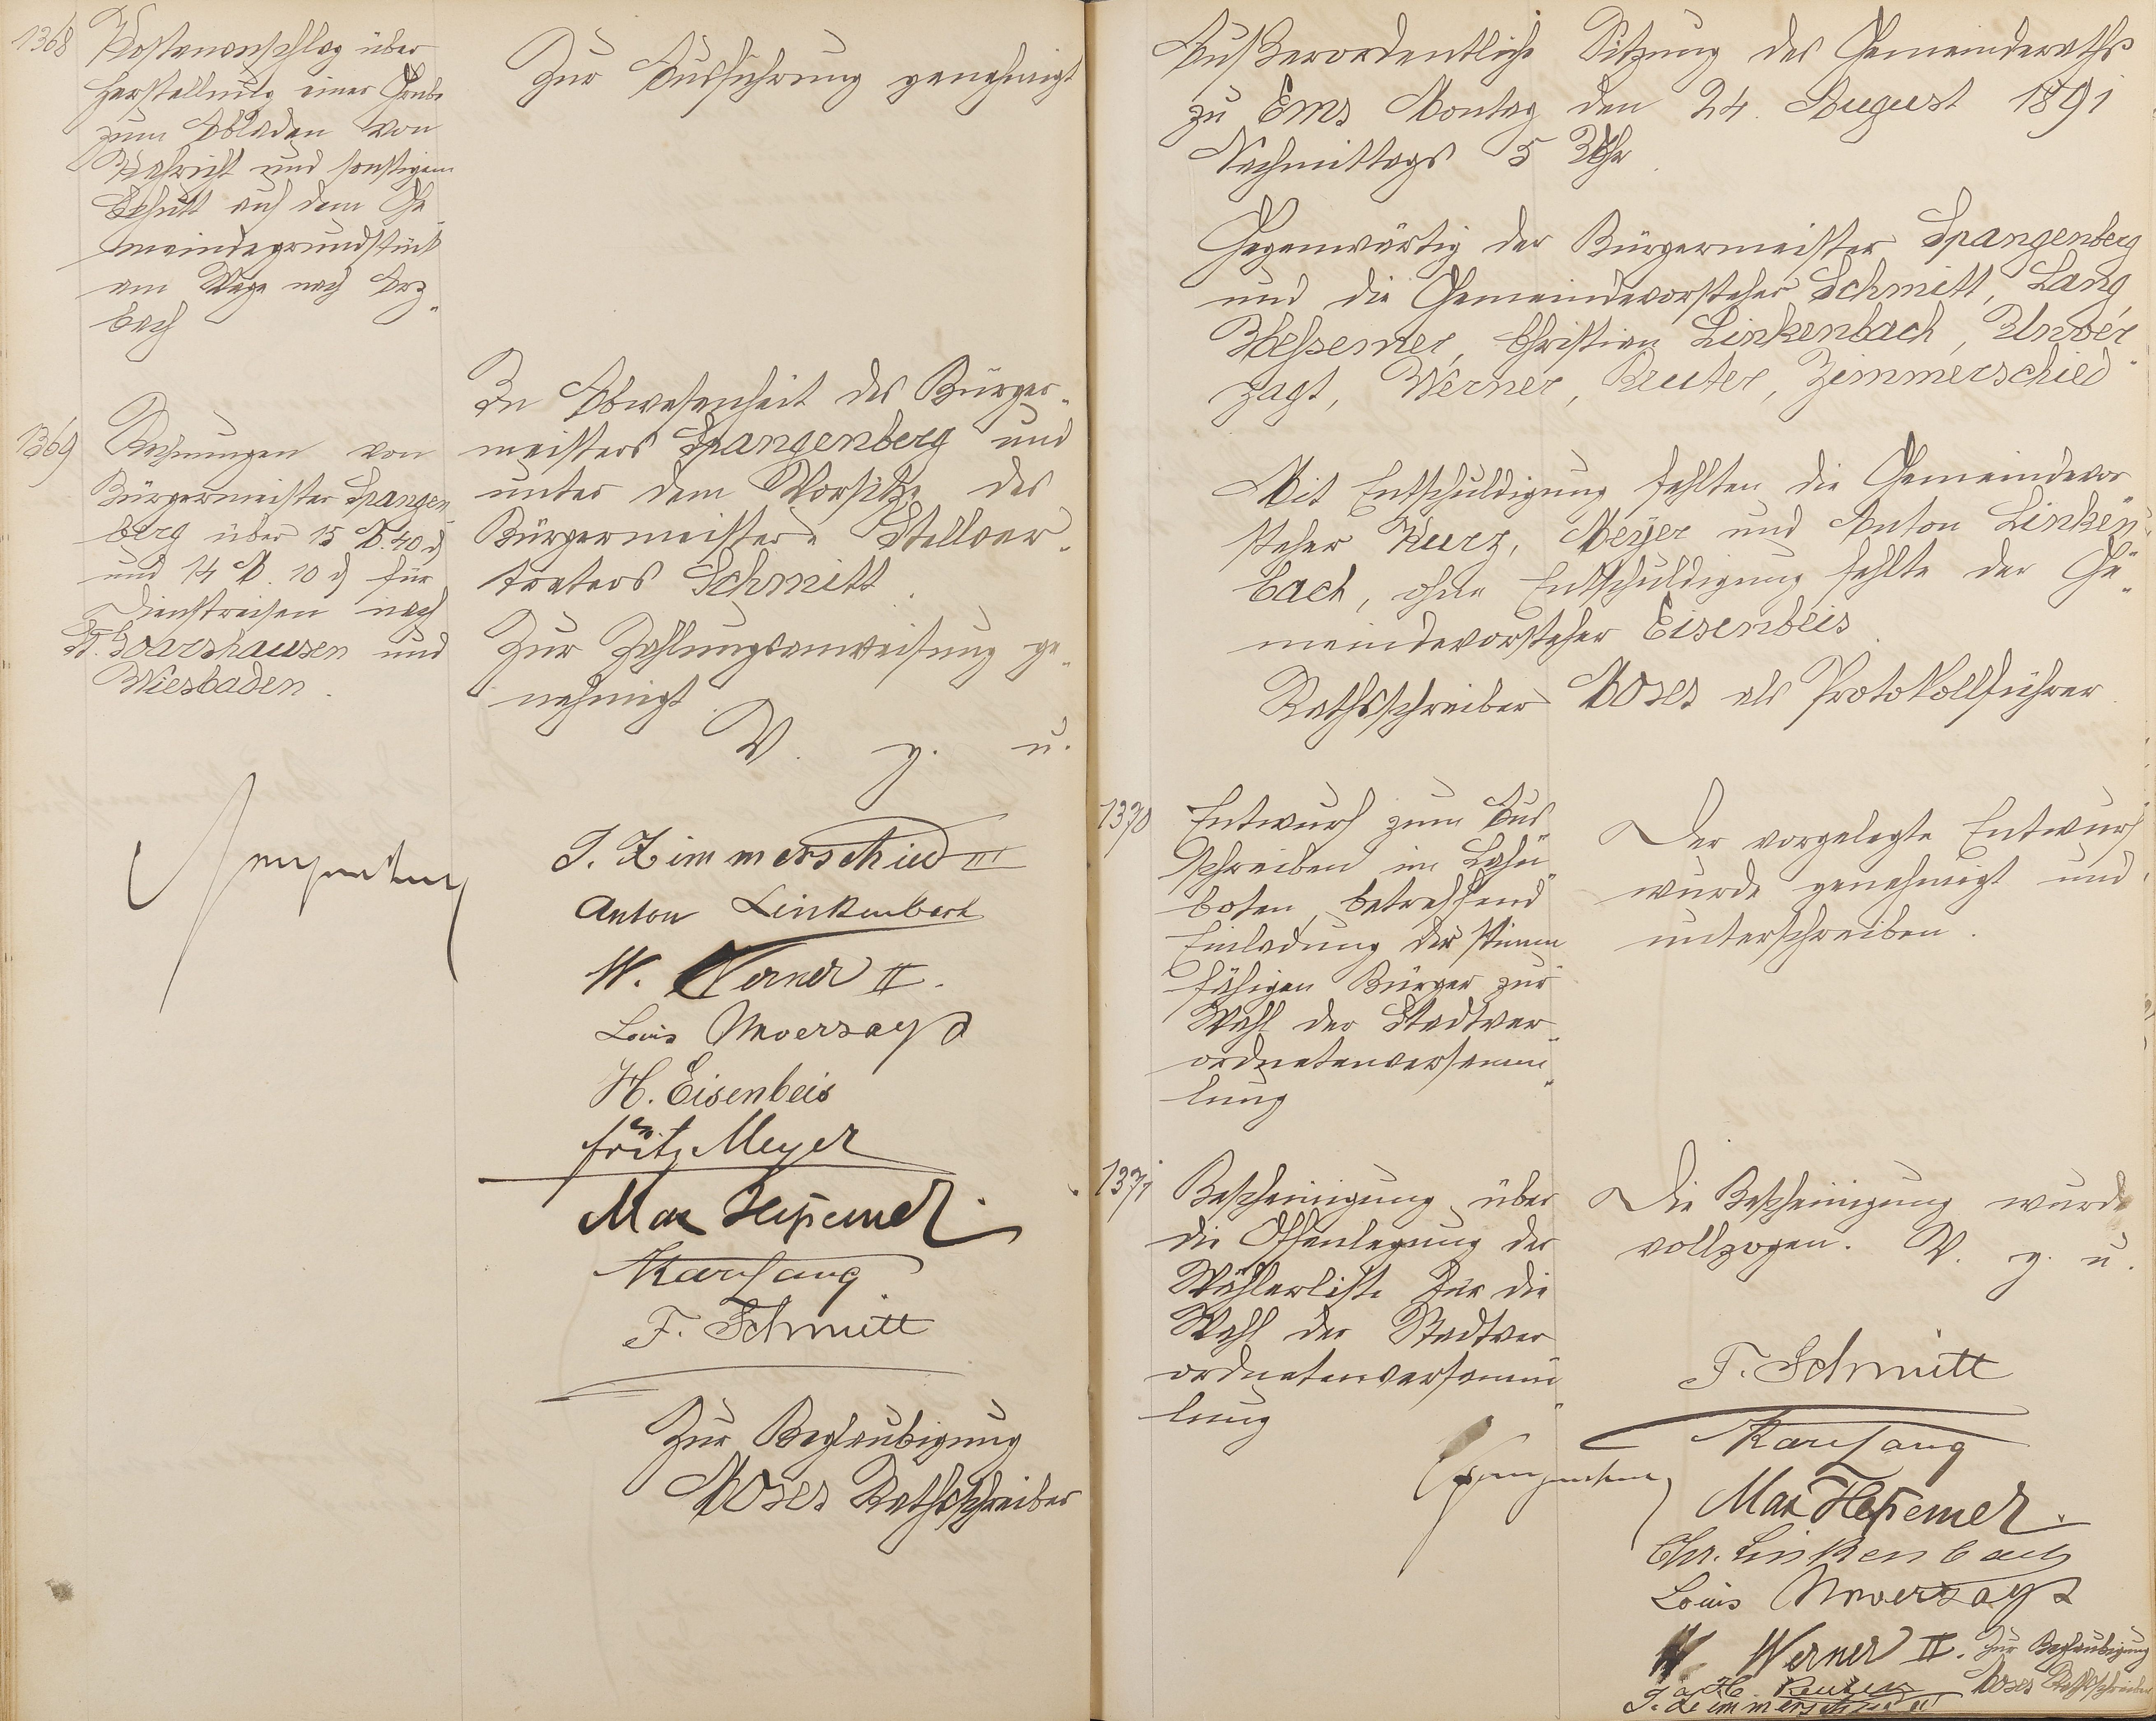 1368
Kostenanschlag über
Herstellung einer Grube
zum Abladen von
Kehricht und sonstigem
Schutt auf dem Ge
meindegrundstück
am Wege nach Arz„
bach
Zur Ausführung genehmigt
1369
Rechnungen von
Bürgermeister Spangen
berg über 15 M. 40 d
und 14 M. 10 d für
Dienstreisen nach
St. Goarshausen und
Wiesbaden.
In Abwesenheit des Bürger„
meisters Spangenberg und
unter dem Vorsitze des
Bürgermeister-Stellver„
treters Schmitt.
Zur Zahlungsanweisung ge„
nehmigt.
V. g. u.
Spangenberg
J. Zimmerschied III
Anton Linkenbach
W. Werner II.
Louis Unverzagt
H. Eisenbeis
Fritz Meyer
Max Heßemer.
Karl Lang
F. Schmitt
Zur Beglaubigung
Moses Rathsschreiber
Außerordentliche Sitzung des Gemeinderaths
zu Ems Montag den 24. August 1891
Nachmittags 5 Uhr.
Gegenwärtig der Bürgermeister Spangenberg
und die Gemeindevorsteher Schmitt, Lang,
Heßemer, Christian Linkenbach, Unver
zagt, Werner, Reuter, Zimmerschied
Mit Entschuldigung fehlten die Gemeindevor
steher Kurz, Meyer und Anton Linken„
bach, ohne Entschuldigung fehlte der Ge„
meindevorsteher Eisenbeis.
Rathsschreiber Moses als Protokollführer.
1370
Entwurf zum Aus„
schreiben im Lahn„
boten, betreffend
Einladung der stimm
fähigen Bürger zur
Wahl der Stadtver„
ordnetenversamm„
lung
Der vorgelegte Entwurf
wurde genehmigt und
unterschreiben.
1371
Bescheinigung über
die Offenlegung der
Wählerliste für die
Wahl der Stadtver
ordnetenversamm„
lung
Die Bescheinigung wurde
vollzogen. V. g. u.
Spangenberg
F. Schmitt
Karl Lang
Max Heßemer.
Chr. Linkenbach
Louis Unverzagt
W. Werner II. Zur Beglaubigung
Reuter Moses Rathsschreiber
J. Zimmerschied III